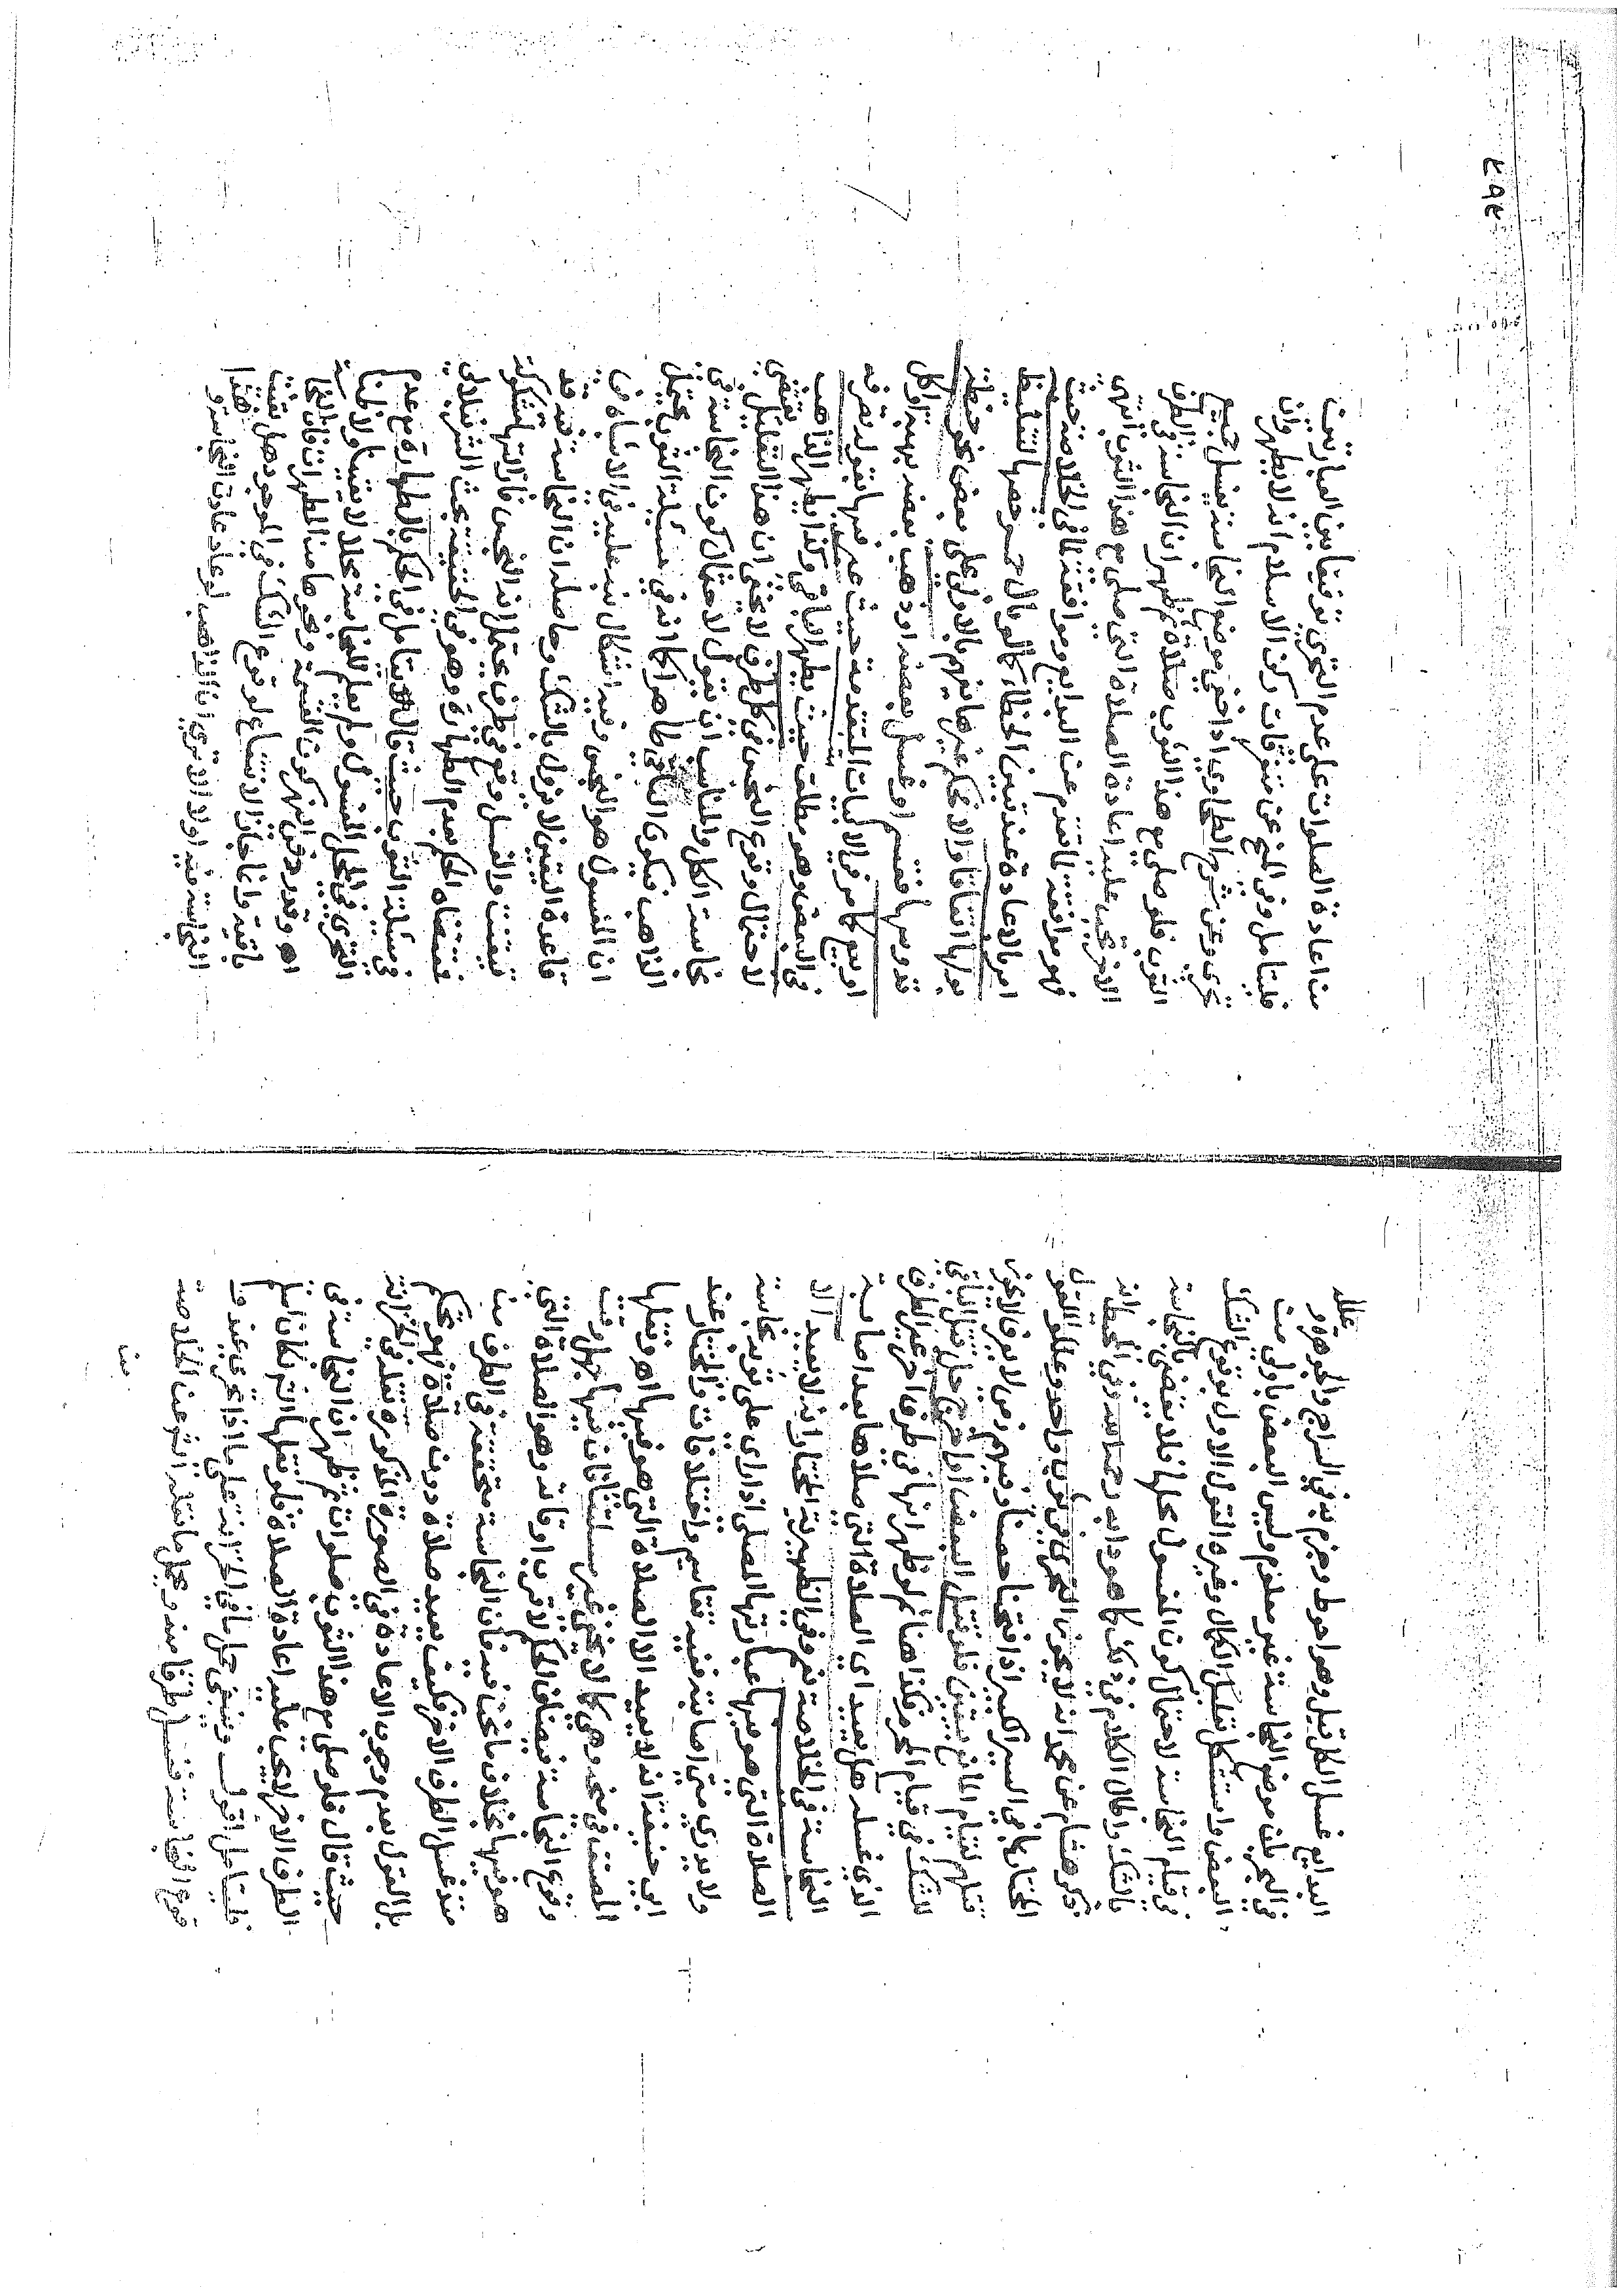 البدايع غسل الكل قيل وهو احوط وجزم به في السراج والجوهرة وعلله
في البحر بان موضع النجاسة غير معلوم وليس البعض باولى من
البعض واستشكل تعليل الكمال وغيره القول الاول بوقوع الشك
في قيام النجاسة لاحتمال كون المغسول محلها فلا يقضى بالنجاسة
بالشك واطال الكلام في ذلك كما هو دابه رحمه الله وفي المحيط انه
ذكر هشام عن محمد انه لا يجوز التحري في ثوب واحد وعللوا القول
المختار بما في السير الكبير اذا فتحنا حصنا وفيهم ذمي لا يعرف لا يجوز
قتلهم لقيام المانع بيقين فلو قتل البعض او اخرج حل قتل الباقي
للشك في قيام المحرم فكذا هنا ثم لو ظهر انها في طرف اخر غير الطرف
الذي غسله هل يعيد اي الصلاة التي صلاها بعد اصابة
النجاسة في الخلاصة نعم وفي الظهيرية المختار انه لا يعيد الا
الصلاة التي هو فيها عبارتها المصلي اذا راى على ثوبه نجاسة
ولا يدري متى اصابته ففيه تقاسيم واختلافات والمختار عند
ابي حنيفة انه لا يعيد الا الصلاة التي هو فيها اه ونقلها
المصنف في منحه وهي كما لا يخفى غير مسئلتنا فان فيها جهل وقت
وقوع النجاسة فيضاف الحكم لاقرب اوقاته وهو الصلاة التي
هو فيها بخلاف ما نحن فيه فان النجاسة محققة في الطرف من
منذ غسل الطرف الاخر فكيف يعيد صلاة دون صلاة فهو تحكم
بل القول بعدم وجوب الاعادة في الصورة المذكورة نقله في الخزانة
حيث قال فلو صلى مع هذا الثوب صلوات ثم ظهر ان النجاسة في
الطرف الاخر لا يجب عليه اعادة الصلاة فلو نقلها الشارح لكان اسلم
فليتامل اقول وينبغي حمل ما في الخزانة على ما اذا تحرى عند ما
وقوع النجاسة فغسل طرفا منه وحمل ما نقله الشرح عن الخلاصة
من
٢٩٣
من اعادة الصلوات على عدم التحري توفيقا بين العبارتين
فليتامل وفي المنح عن متفرقات ركن الاسلام انه لا يطهر وان
تحرى وعن شرح الطحاوي اذا خفي موضع النجاسة يغسل جميع
الثوب فلو صلى مع هذا الثوب صلاة ثم ظهر ان النجاسة في الطرف
الاخر تجب عليه اعادة الصلاة التي صلى مع هذا الثوب انتهى
فهو موافقة لما تقدم عن البدايع وموافقة لما في الخلاصة حيث
امر بالاعادة عند تبين الخطاء كما لو بال حمر وخصها لتغليظ
بولها اتفاقا والا فحكم غيرها يعلم بالاولى على بعض نحو حنطة
تدوسها فقسم او غسل بعضه او ذهب بعضه بهبة او اكل
او بيع كما مر في الابيات المتقدمة حيث عبر فيها بقوله تصرفه
في البعض وهو مطلق حيث يطهر الباقي وكذا يطهر الذاهب
لاحتمال وقوع النجس في كل طرف لا يخفى ان هذا التعليل يقتضي
نجاسة الكل والمناسب ان يقول لاحتمال كون النجاسة في
الذاهب فيكون الباقي طاهرا كما انه في مسئلة الثوب يحتمل
ان المغسول هو النجس وفيه اشكال نبه عليه في الاشباه في
قاعدة اليقين لا يزول بالشك وحاصله ان النجاسة قد
تيقنت والغسل وقع في طرف يحتمل انه النجس فازالتها مشكوكة
فمقتضاه الحكم بعدم الطهارة وهو في الحقيقة بحث الشرنبلالي
في مسئلة الثوب حيث قال لا يتامل في الحكم بالطهارة مع عدم
التحري في المحل المغسول ولم يعلم للنجاسة محلا لا يقينا ولا ظنا
اه وقدر دفي النهر كون القسمة ونحوها من المطهرات فان النجاسة
باقية وانما جاز الانتفاع لوقوع الشك في الموجود هل بقيت
النجاسة فيه اولا الا ترى ان الذاهب لو عاد عادت النجاسة و